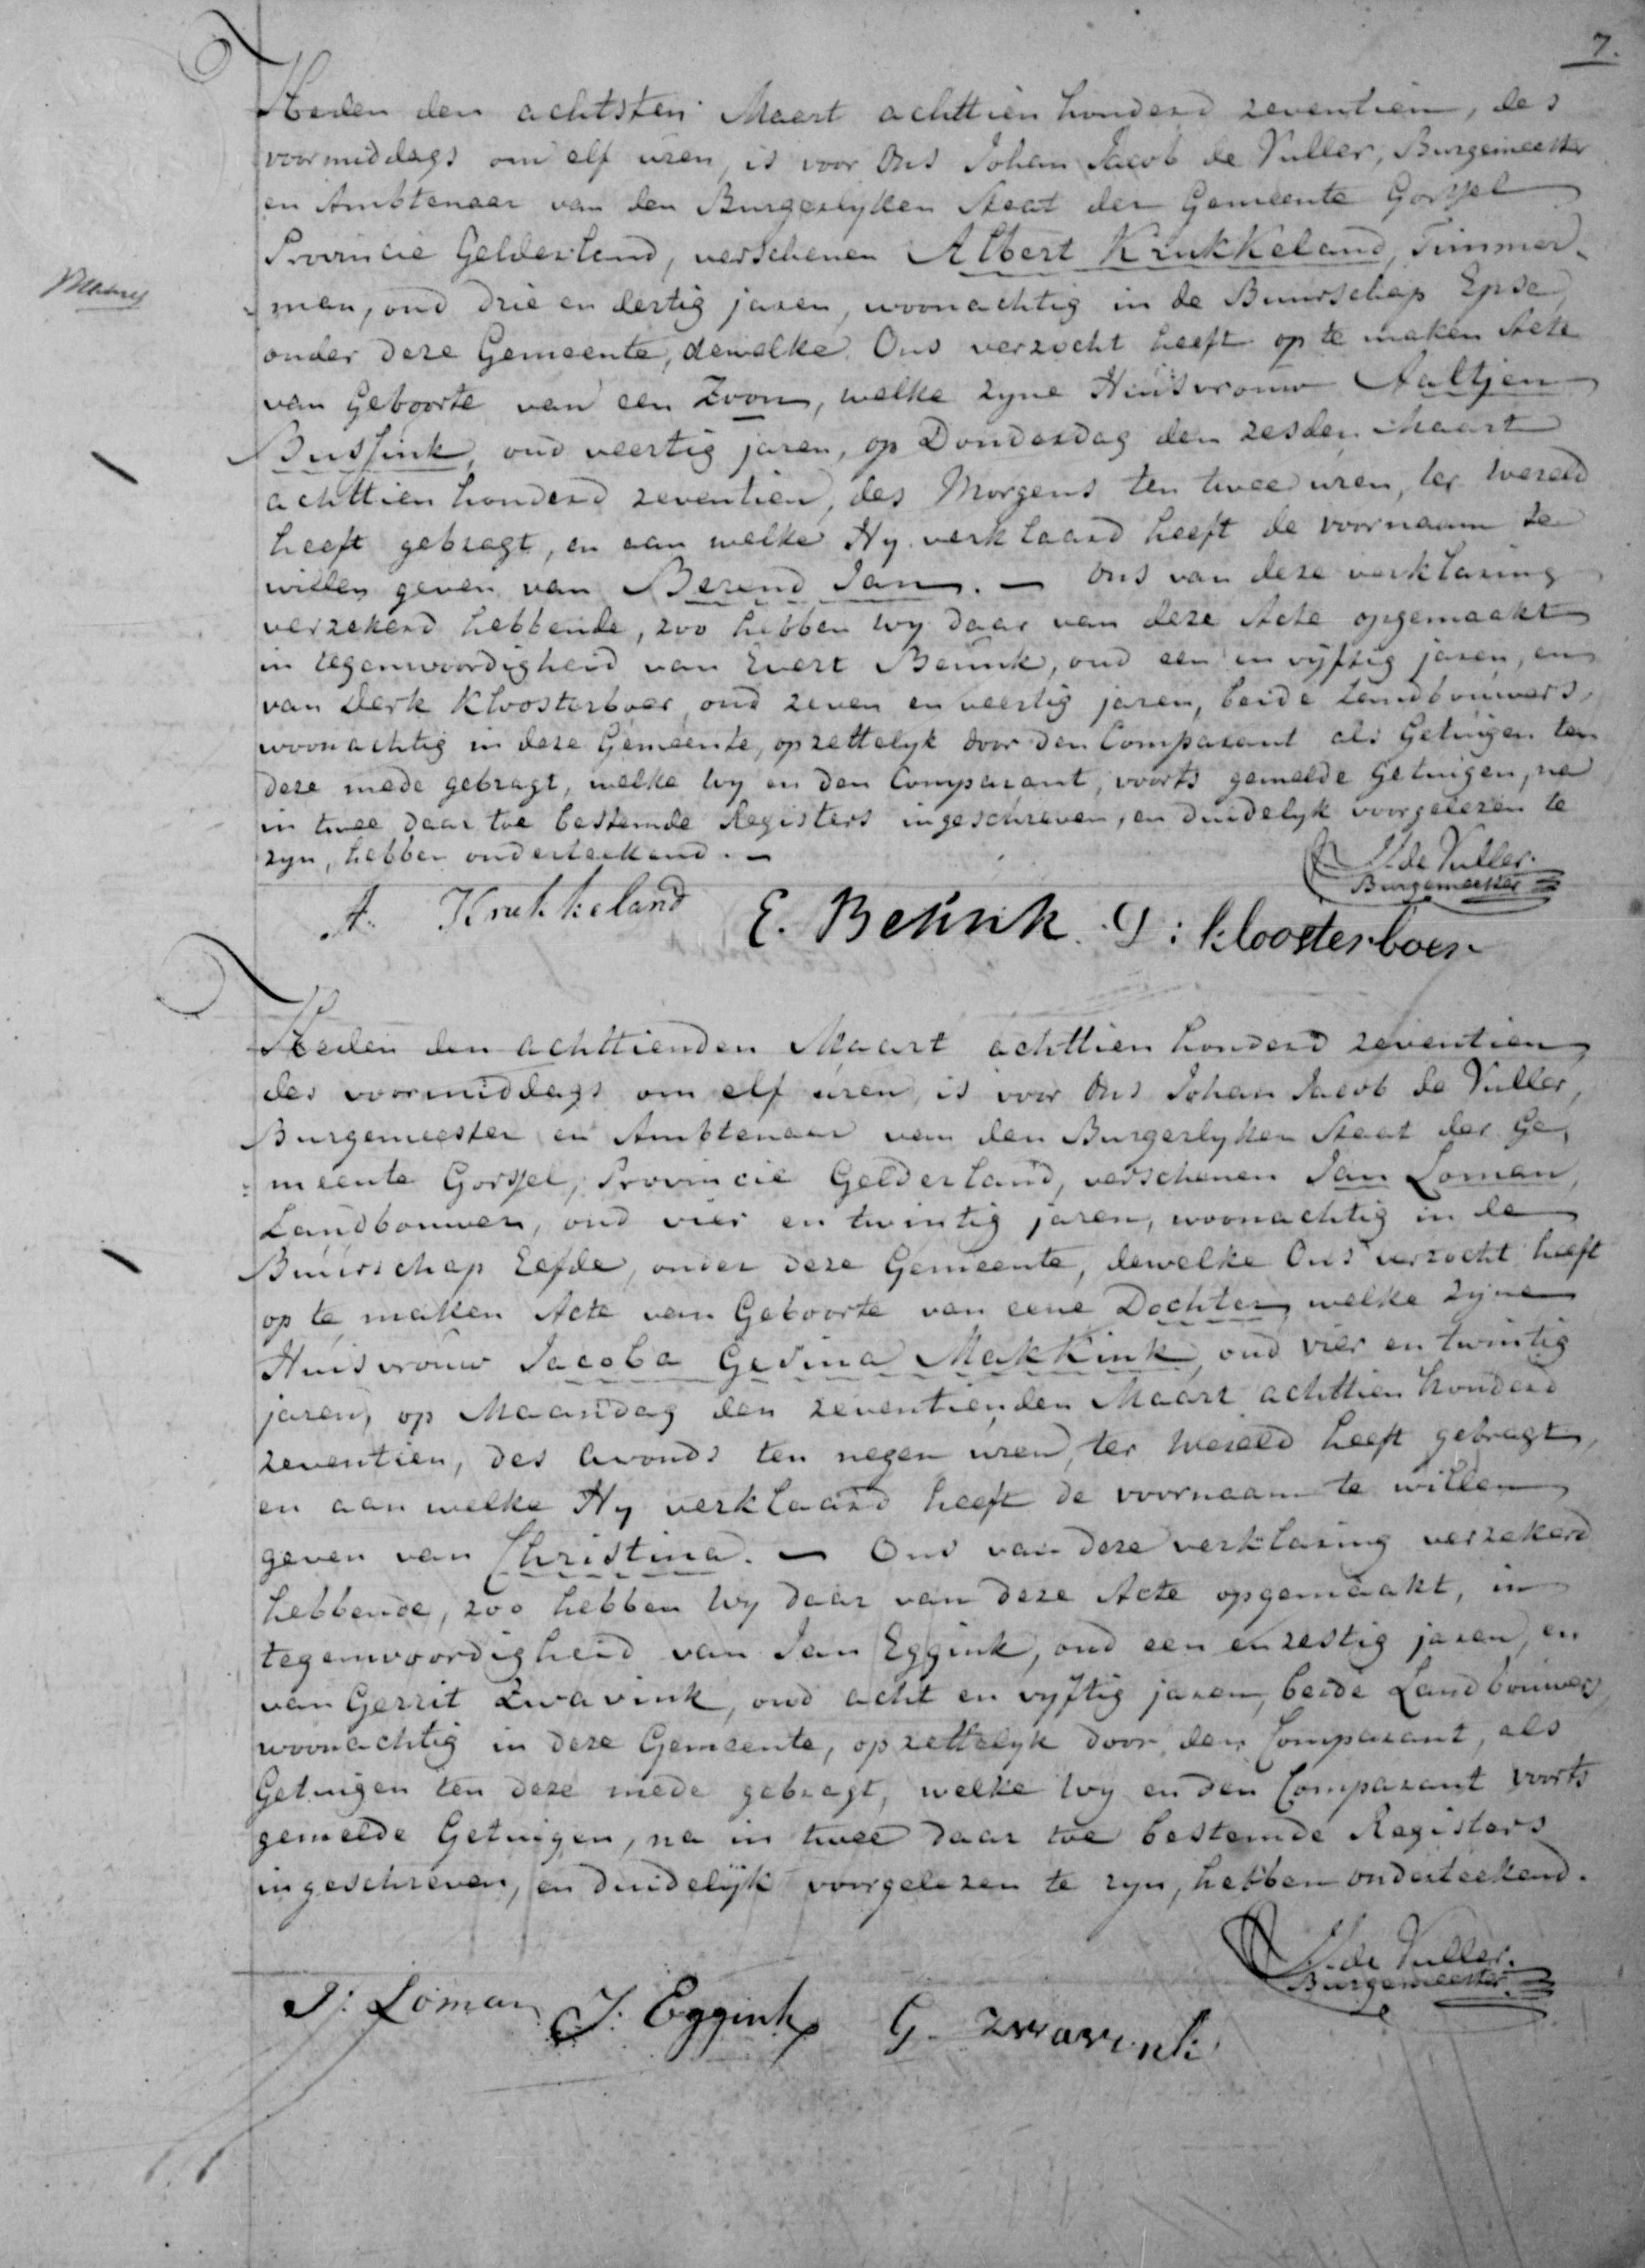 7.
Heden den achtsten Maart achttien honderd zeventien, des
voormiddags om elf uren, is voor Ons Johan Jacob de Vuller, Burgemeester
en Ambtenaar van den Burgerlyken Staat der Gemeente Gorssel
Provincie Gelderland, verschenen Albert Krukkeland, Timmer-
-man, oud drie en dertig jaren, woonachtig in de Buurschap Epse,
onder deze Gemeente, dewelke Ons verzocht heeft op te maken Acte
van Geboorte van een Zoon, welke zyne Huisvrouw Aaltjen
Bussink, oud veertig jaren, op Donderdag den zesden Maart
achttien honderd zeventien, des Morgens ten twee uren, ter wereld
heeft gebragt, en aan welke Hy verklaard heeft de voornaam te
willen geven van Berend Jan. — Ons van deze verklaring
verzekerd hebbende, zoo hebben wy daar van deze Acte opgemaakt
in tegenwoordigheid van Evert Beunk, oud een en vyftig jaren, en
van Derk Kloosterboer, oud zeven en veertig jaren, beide Landbouwers,
woonachtig in deze Gemeente, opzettelyk door den Comparant als Getuigen ten
deze mede gebragt, welke wy en den Comparant, voorts gemelde Getuigen, na
in twee daar toe bestemde Registers ingeschreven, en duidelyk voorgelezen te
zyn, hebben onderteekend. —
de Vuller.
Burgemeester
A. Krukkeland E. Beunk. D: kloosterboer
Heden den achttienden Maart achttien honderd zeventien
des voormiddags om elf uren, is voor Ons Johan Jacob de Vuller,
Burgemeester en Ambtenaar van den Burgerlyken Staat der Ge-
:meente Gorssel, Provincie Gelderland, verschenen Jan Loman,
Landbouwer, oud vier en twintig jaren, woonachtig in de
Buurschap Eefde, onder deze Gemeente, dewelke Ons verzocht heeft
op te maken Acte van Geboorte van eene Dochter, welke zijne
Huisvrouw Jacoba Gesina Makkink, oud vier en twintig
jaren, op Maandag den zeventienden Maart achttien honderd
zeventien, des Avonds ten negen uren, ter wereld heeft gebragt,
en aan welke Hy verklaard heeft de voornaam te willen
geven van Christina. — Ons van deze verklaring verzekerd
hebbende, zoo hebben wy daar van deze Acte opgemaakt, in
tegenwoordigheid van Jan Eggink, oud een en zestig jaren, en
van Gerrit Zwavink, oud acht en vyftig jaren, beide Landbouwers,
woonachtig in deze Gemeente, opzettelyk door den Comparant, als
Getuigen ten deze mede gebragt, welke wy en den Comparant voorts
gemelde Getuigen, na in twee daar toe bestemde Registers
ingeschreven, en duidelijk voorgelezen te zyn, hebben onderteekend.
de Vuller.
Burgemeester
J: Loman J. Eggink G. Zwavink